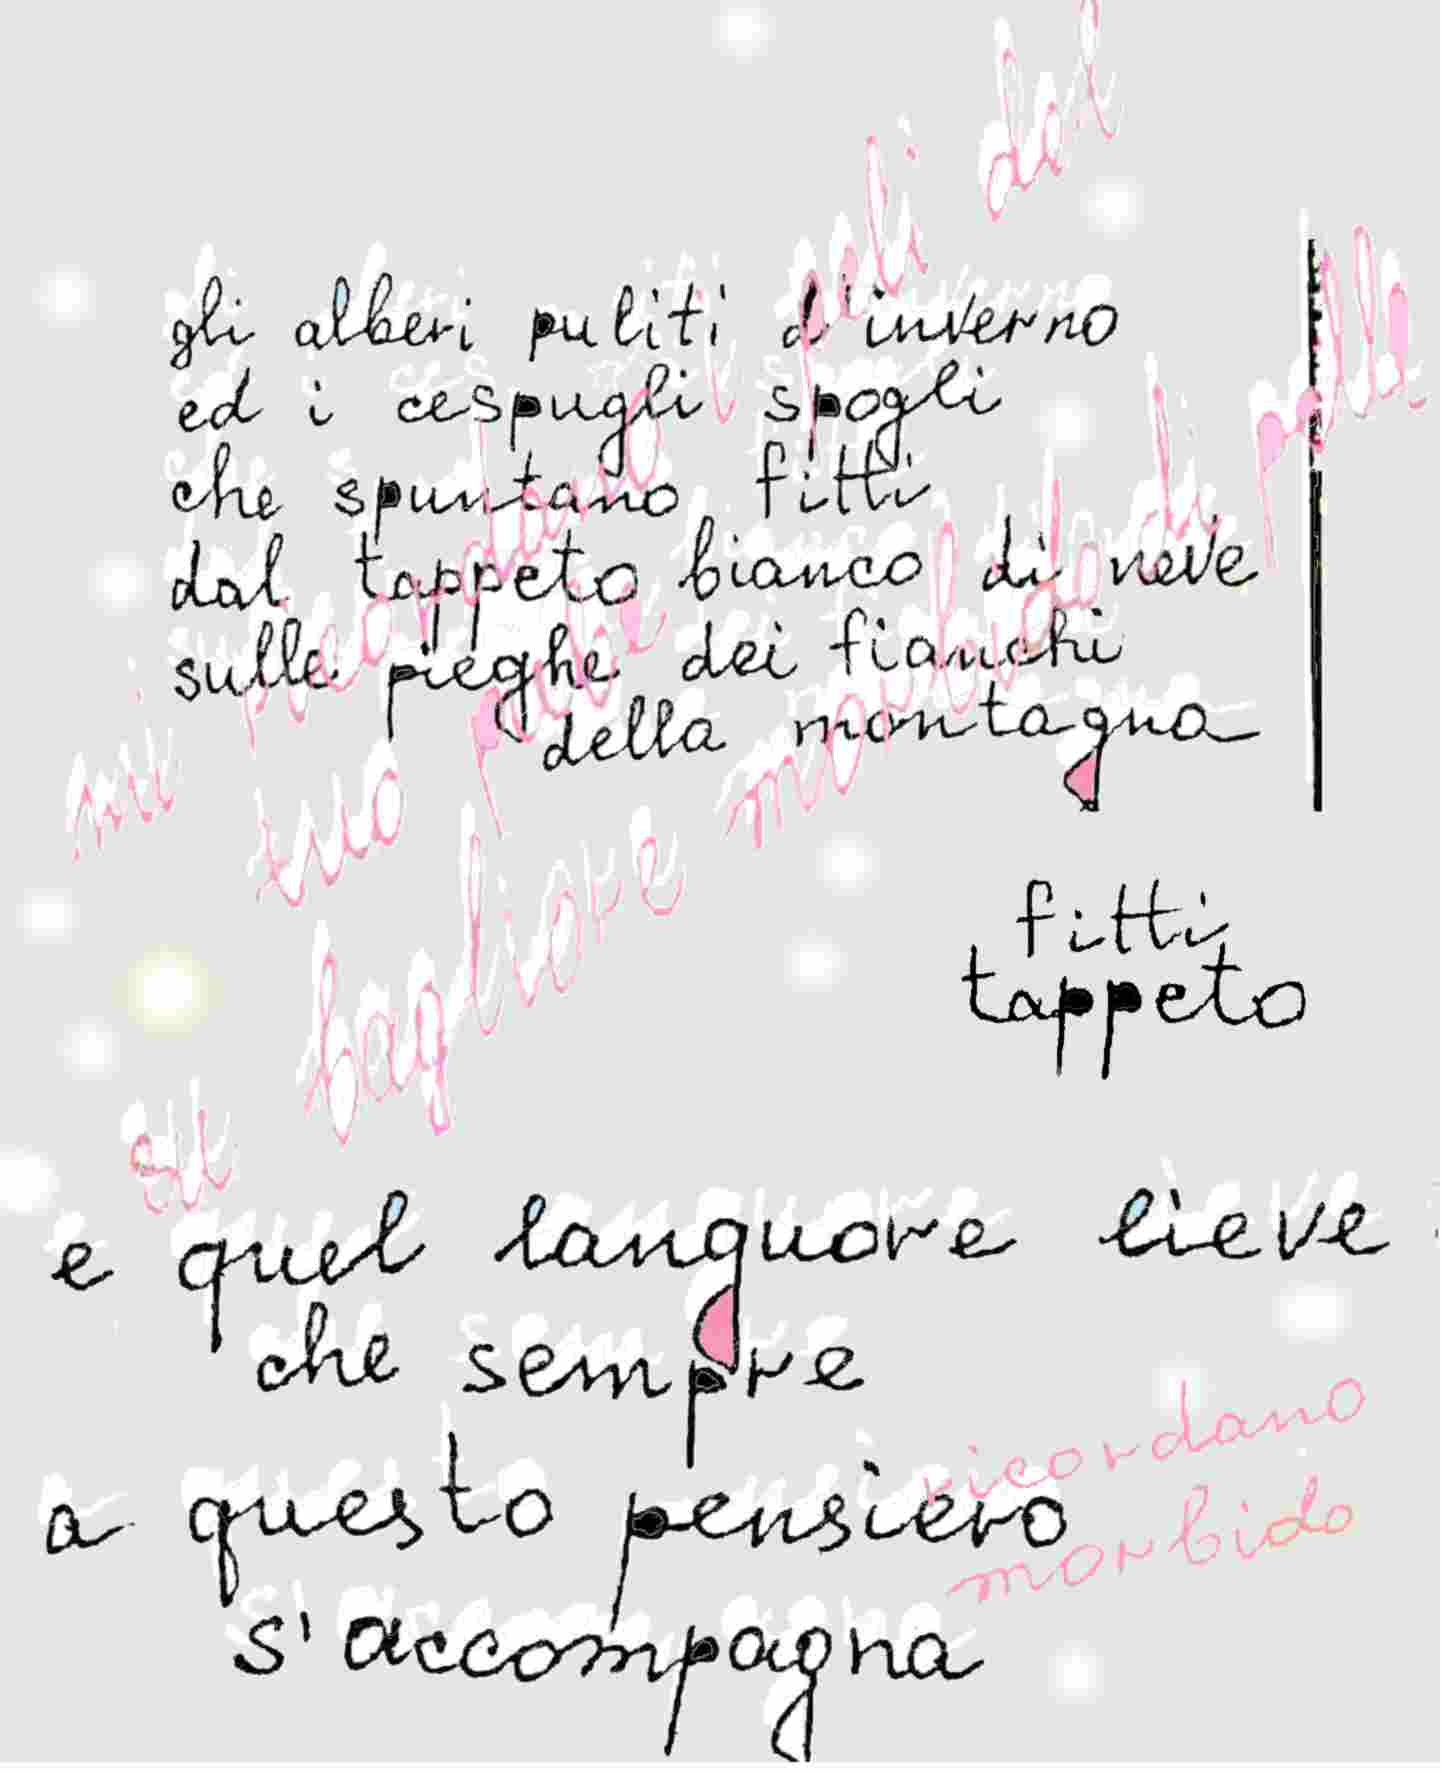 gli alberi puliti d'inverno
ed i cespugli spogli
che spuntano fitti
dal tappeto bianco di neve
sulle pieghe dei fianchi
della montagna
mi ricordano i peli del
tuo pube
su bagliore morbido di pelle
fitti
tappeto
e quel languore lieve
che sempre
a questo pensiero
s'accompagna
ricordano
morbido